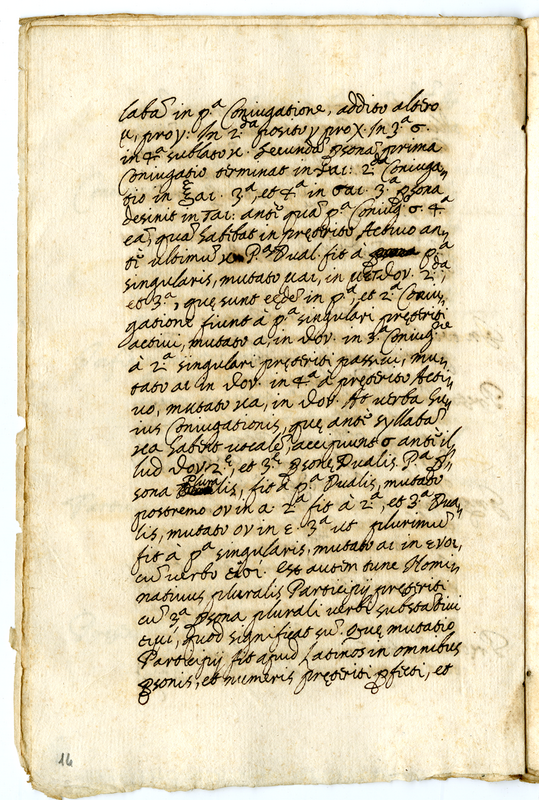 labã in pª Coniugatione, addito altero
μ, pro γ. In 2da posito γ pro χ. In 3ª σ.
in 4ª sublato κ. Secunda psona, prima
Coniugatio terminat in ψαι. 2da Coniuga„
tio in ξαι. 3ª, et 4ª in σαι. 3ª psona
desinit in ται. antẽ quã pª Coniug. σ 4ª
eã, quã habebat in preterito Activo an„
tẽ ultimũ Pª Dual. fit à pª
singularis, mutato μαι, in μεθον. 2da,
et 3ª, quę sunt eędẽ in pª, et 2ª Coniu„
gatione fiunt à pª singulari pręteriti
activi, mutato α, in θον. in 3ª Coniugne
à 2ª singulari pręteriti passivi, mu„
tato αι in θον. in 4ª à pręterito Acti„
vo, mutato κα, in θον. At verba hu„
ius Coniugationis, quę antẽ syllabã
κα habẽt vocalẽ, accipiunt σ antẽ il„
lud θον. 2ę, et 3ę psonę Dualis. Pª p„
sona Pluralis, fit à pª Dualis, mutato
postremo ον in α 2ª fit à 2ª, et 3ª Dua„
lis, mutato ον in ε. 3ª ut plurimũ
fit à pª singularis, mutato αι in ενοι,
cũ verbo εἰσί. Est autem tunc Nomi„
nativus pluralis Participij pręteriti
cũ 3ª psona plurali verbi substãtivi
εἰσί, quod significat sũt. Quę mutatio
Participij fit apud Latinos in omnibus
psonis, et numeris pręteriti pfecti, et
16